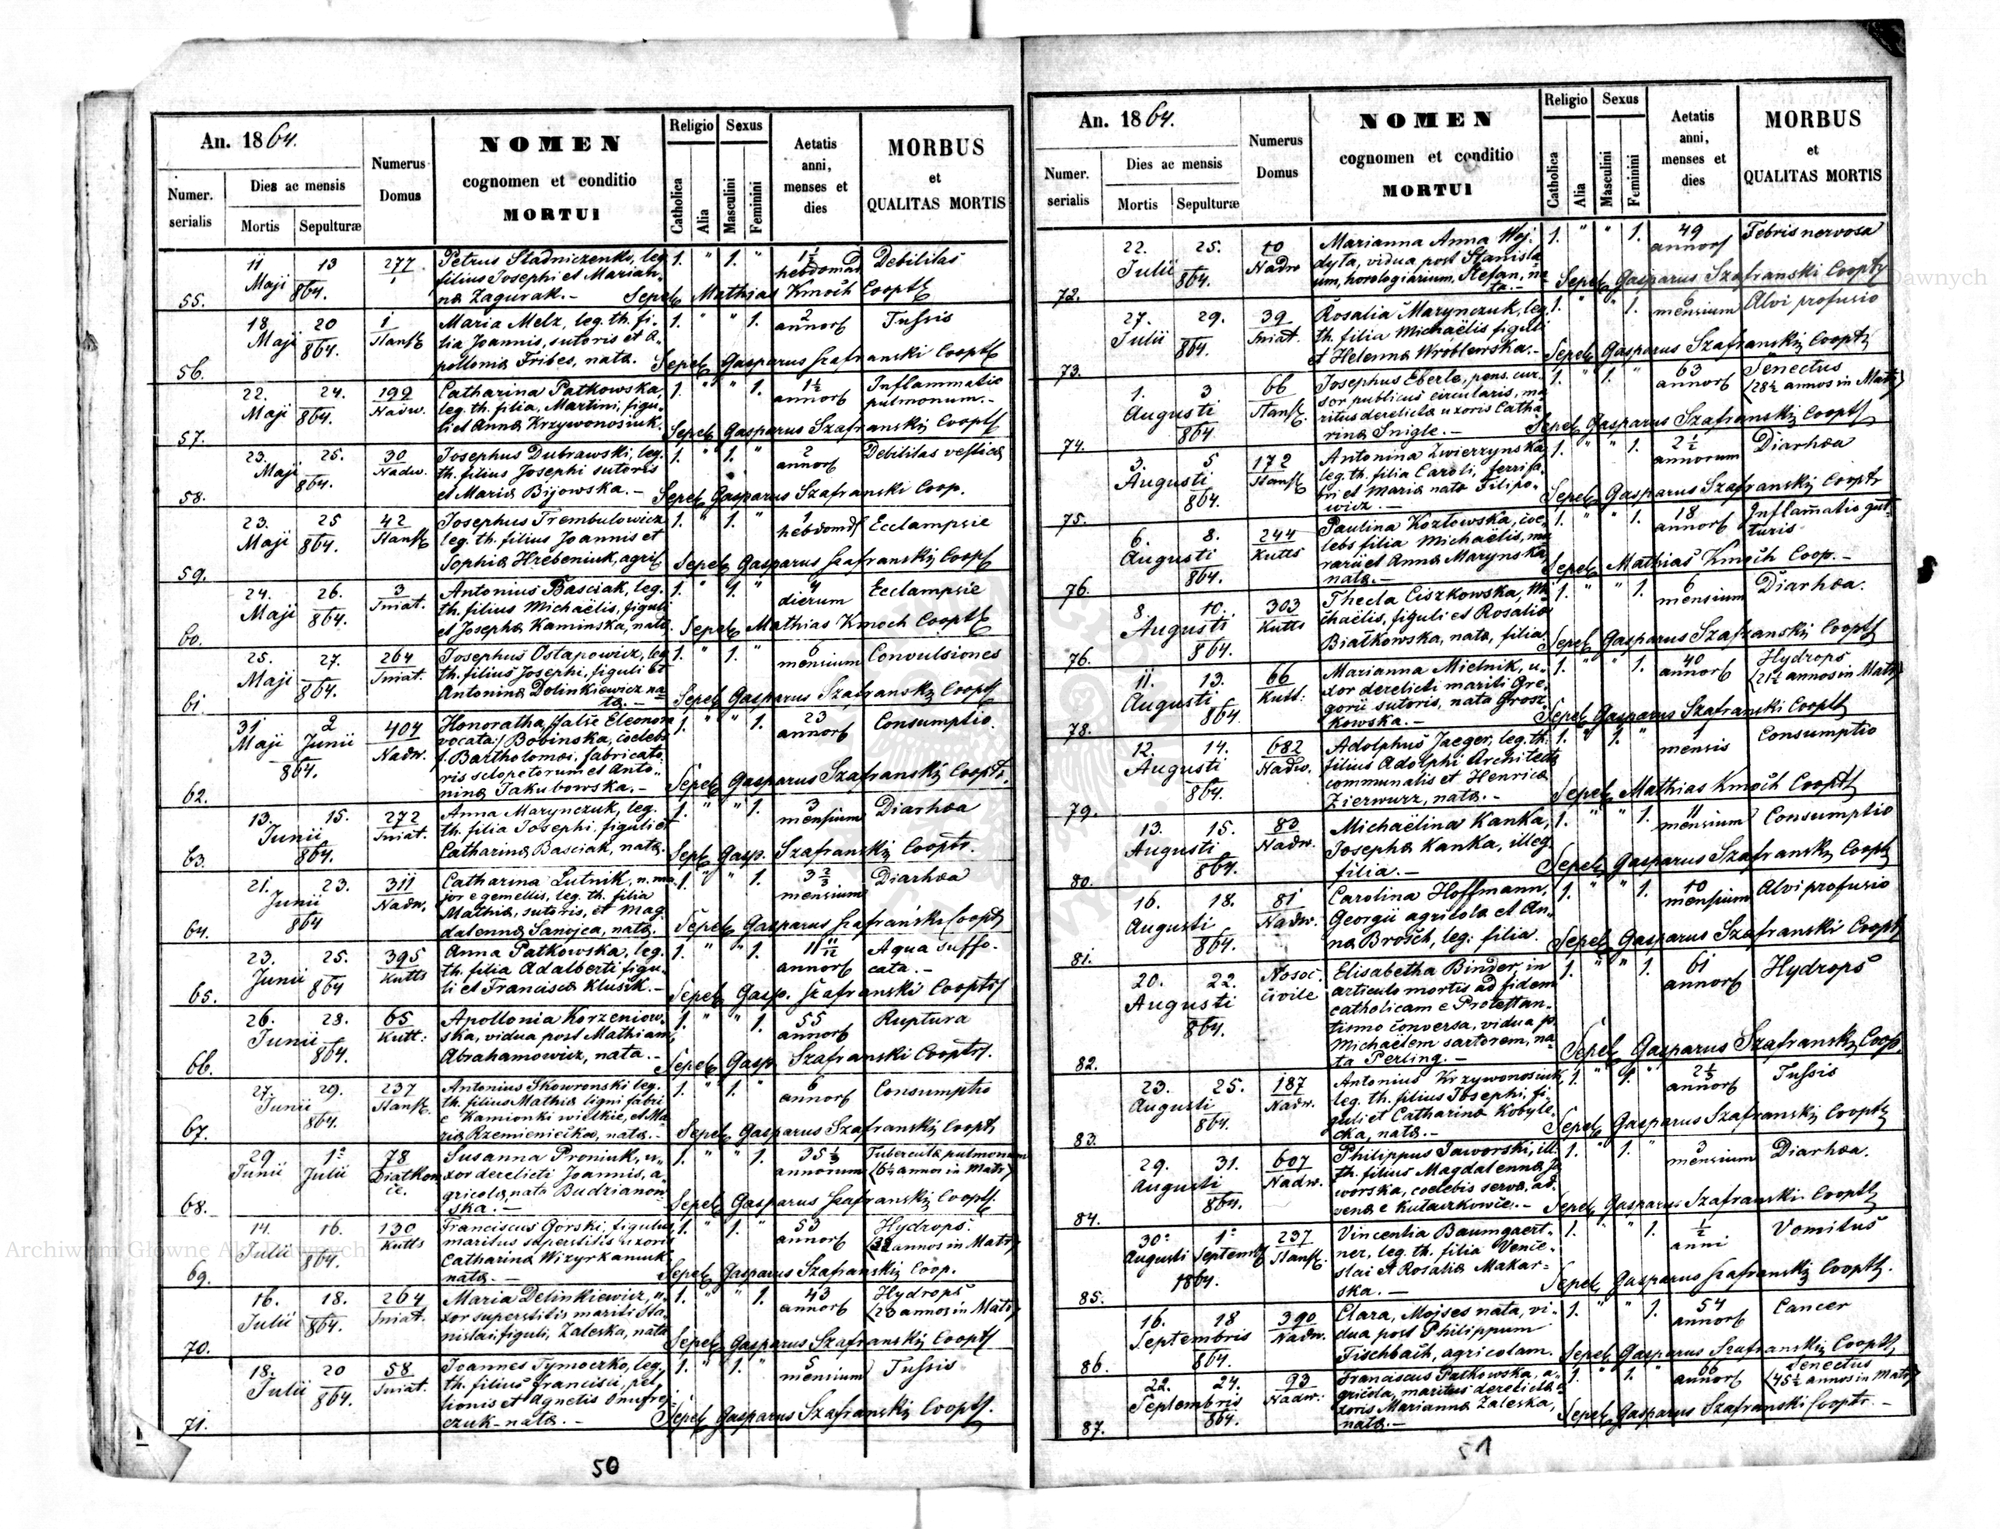 An. 1864.
Numer. serialis
Dies ac mensis
Mortis
Sepulturæ
Numerus Domus
NOMEN
cognomen et conditio
MORTUI
Religio
Catholica
Alia
Sexus
Masculini
Feminini
Aetatis
anni,
menses et
dies
MORBUS
et
QUALITAS MORTIS
55. 11 Maji 13 864. 277
Petrus Stadniczenko, leg.
filius Josephi et Marian-
na Zagurak.-
1. " 1. " 1½ hebdomad Debilitas
Sepel Mathias Kmoch Coopt
56. 18. Maji 20 864. 1 Stanſl
Maria Melz, leg. th. fi-
lia Joannis, sutoris et A-
pollonia Fribes, nata.
1. " " 1. 2 annor Tuſsis
Sepel Gasparus Szafranski Coopt
57. 22. Maji 24. 864. 199 Nadw.
Catharina Patkowska,
leg. th. filia, Martini, figu-
li et Anna Krzywonosiuk.
1. " " 1. 1½ annor Inflammatio
pulmonum.-
Sepel Gasparus Szafranski Coopt
58. 23. Maji 25. 864. 30 Nadw.
Josephus Dubrawski, leg.
th. filius Josephi sutoris
et Maria Bijowska.-
1. " 1. " 2 annor Debilitas
Sepel Gasparus Szafranski Coop.
59. 23. Maji 25 864. 42 Stanſl
Josephus Trembulowicz
leg. th. filius Joannis et
Sophia Hrebeniuk, agri
1. " 1. " 1 hebdom Ecclampsie
Sepel Gasparus Szafranski Coopt
60. 24. Maji 26. 864. 3 Sniat.
Antonius Basciak, leg.
th. filius Michaëlis, figuli
et Josepha Kaminska, nata.
1. " 1. " 4 dierum Ecclampsie
Sepel Mathias Kmoch Coopt
61. 25. Maji 27. 864. 264 Sniat.
Josephus Ostapowicz, leg
th. filius Josephi, figuli et
Antonina Delinkiewicz na-
ta.-
1. " 1. " 6 mensium Convulsiones
Sepel Gasparus Szafranski Coopt
62. 31 Maji 2 Junii 864. 404 Nadw.
Honoratha, falie Eleonora
vocata/ Bobinska, coelebs
f. Bartholomei, fabricato-
ris sclopetorum et Anto-
nina Jakubowska.-
1. " " 1. 23 annor Consumptio.
Sepel Gasparus Szafranski Coopt.
63. 13. Junii 15. 864. 272 Sniat.
Anna Marynczuk, leg.
th. filia Josephi, figuli et
Catharina Basciak, nata.
1. " " 1. 3 menſium Diarhœa
Sepl Gasp. Szafranski Coopt.
64. 21. Junii 23. 864 311 Nadw.
Catharina Lutnik, n. ma
jor e gemellis, leg. th. filia
Mathia, sutoris, et Mag
dalenna Sanojca, nata.
1. " " 1. 3⅔ mensium Diarhœa
Sepel Gasparus Szafranski Coopt
65. 23. Junii 25. 864 395 Kutts
Anna Patkowska, leg.
th. filia Adalberti figu-
li et Francisca Klusik.-
1. " " 1. 11/12 annor Aqua suffo-
cata.-
Sepel Gasp. Szafranski Coopt
66. 26. Junii 28. 864. 65 Kutt:
Apollonia Korzeniow-
ska, vidua post Mathiam
Abrahamowicz, nata.-
1. " " 1. 55 annor Ruptura
Sepel Gasp. Szafranski Coopt.
67. 27. Junii 29. 864. 237 Stanſl.
Antonius Skowronski leg.
th. filius Mathia ligni fabri
e Kamionki wielkie, et Ma-
ria Rzemieniecka, nata.-
1. " 1. " 6 annor Consumptio
Sepel Gasparus Szafranski Coopt
68. 29 Junii 1º Julii 78
Susanna Proniuk, u-
xor derelicti Joannis, a-
gricola, nata Budzianow
ska.-
1. " " 1. 35⅓ annorum Tubercula pulmonum
(6½ annos in Matr)
Sepel Gasparus Szafranski Coopt
69. 14. Julii 16. 864. 130 Kutts
Franciscus Gorski, figulus
maritus superstitis uxoris
Catharina Wizyrkaniuk
nata.-
1. " 1. " 53 annor Hydrops.
Sepel Gasparus Szafranski Coop.
70. 16. Julii 18. 864. 264 Sniat.
Maria Delinkiewicz, u-
xor superstitis mariti Sta-
nislai figuli, Zaleska, nata
1. " " 1. 43 annor Hydrops
(23 annos in Matr)
Sepel Gasparus Szafranski Coopt
71. 18. Julii 20 864. 58 Sniat.
Joannes Tymoczko, leg.
th. filius francisci, pel-
lionis et Agnetis Onufrej
czuk-nata.-
1. " 1. " 5 mensium Tuſsis
Sepel Gasparus Szafranski Coopt
50
An. 1864.
Numer. serialis
Dies ac mensis
Mortis
Sepulturæ
Numerus Domus
NOMEN
cognomen et conditio
MORTUI
Religio
Catholica
Alia
Sexus
Masculini
Feminini
Aetatis
anni,
menses et
dies
MORBUS
et
QUALITAS MORTIS
72. 22. Julii 25. 864. 10 Nadw
Marianna Anna Woj-
dyta, vidua post Stanisla
um, horologiarium, Stefan, na
ta.-
1. " " 1. 49 annor Febris nervosa
Sepel Gasparus Szafranski Coopt
73. 27. Julii 29. 864. 39 Sniat.
Rosalia Marynczuk, leg
th. filia Michaëlis figuli
et Helenna Wroblewska.-
1. " " 1. 6 mensium Alvi profusio
Sepel Gasparus Szafranski Coopt
74. 1. Augusti 3 864 66 Stanſl.
Josephus Eberle, pens. cur-
sor publicus circularis, ma
ritus derelicta uxoris Catha
rina Snigle.-
1. " 1. " 63 annor Senectus
(28½ annos in Matr)
Sepel Gasparus Szafranski Coopt
75. 3. Augusti 5 864. 172 Stanſl
Antonina Zwierzynska
leg. th. filia Caroli, ferrifa-
bri et Maria nata Filipo-
wicz.-
1. " " 1. 2½ annorum Diarhœa
Sepel Gasparus Szafranski Coopt
76. 6. Augusti 8. 864. 244 Kutts
Paulina Kozłowska, coe-
lebs filia Michaëlis, mu
rarii et Anna Marynska
nata.-
1. " " 1. 18 annor Inflam̃atio gut-
turis
Sepel Mathias Kmoch Coop.-
76. 8. Augusti 10. 864. 303 Kutts
Thecla Ciszkowska, Mi
chaëlis, figuli et Rosalia
Białkowska, nata, filia.
1. " " 1. 6 mensium Diarhœa.
Sepel Gasparus Szafranski Coopt
78. 11. Augusti 13. 864 66 Kutt:
Marianna Mielnik, u-
xor derelicti mariti Gre-
gorii sutoris, nata Grosz-
kowska.-
1. " " 1. 40 annor Hydrops
(21½ annos in Matr)
Sepel Gasparus Szafranski Coopt
79. 12. Augusti 14. 864. 682 Nadw.
Adolphus Jaeger, leg. th.
filius Adolphi Architecta
communalis et Henrica
Zierwurz, nata.-
1. " 1. " 1 mensis Consumptio
Sepel Mathias Kmoch Coopt
80. 13. Augusti 15. 864. 83 Nadw.
Michaëlina Kanka,
Josepha Kanka, illeg
filia.-
1. " " 1. 11 menſium Consumptio
Sepel Gasparus Szafranski Coopt
81. 16. Augusti 18. 864. 81 Nadw.
Carolina Hoffmann,
Georgii agricola et An-
na Brosch, leg: filia.
1. " " 1. 10 menſium Alvi profusio
Sepel Gasparus Szafranski Coopt
82. 20. Augusti 22. 864. Nosoc. civile
Elisabetha Binder, in
articulo mortis ad fidem
catholicam e Protestan-
tismo conversa, vidua p.
Michaëlem sartorem, na-
ta Perling.-
1. " " 1. 61 annor Hydrops
Sepel Gasparus Szafransk Coop.
83. 23. Augusti 25. 864. 187 Nadw.
Antonius Krzywonosiuk,
leg. th. filius Josephi, fi-
guli et Catharina Kobyle-
cka, nata.-
1. " 1. " annor Tuſsis
Sepel Gasparus Szafranski Coopt
84. 29. Augusti 31. 864. 607 Nadw.
Philippus Jaworski, ill.
th. filius Magdalenna Ja
worska, coelebis serva, ad-
vena e
1. " 1. " 3 mensium Diarhœa.
Sepel Gasparus Szafranski Coopt
85. 30º Augusti 1º Septemb 1864. 237 Stanſl.
Vincentia Baumgaert-
ner, leg. th. filia Vence-
slai et Rosalia Makar-
ska.-
1. " " 1. ½ anni Vomitus
Sepel Gasparus Szafranski Coopt.
86. 16. Septembris 18 864. 390 Nadw.
Clara, Moises nata, vi-
dua post Philippum
Fischbach, agricolam.
1. " " 1. 54 annor Cancer
Sepel Gasparus Szafranski Coopt
87. 22. Septembris 24. 864. 93 Nadw:
Franciscus Patkowska, a-
gricola, maritus derelicta u
xoris Marianna Zaleska,
nata.-
1. " 1. " 66 annor Senectus
(45½ annos in Matr)
Sepel Gasparus Szafranski Coopt.-
51
Archiwum Główne Akt Dawnych